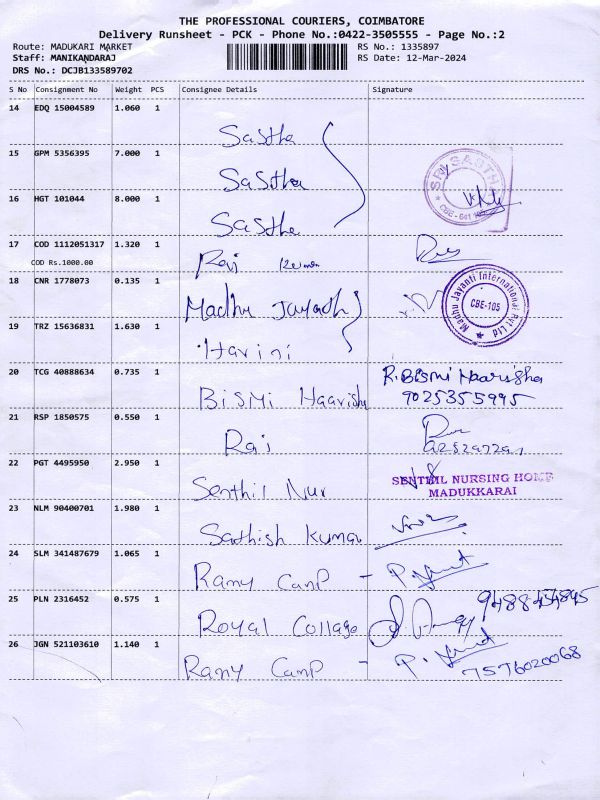 THE PROFESSIONAL COURIERS, COIMBATORE
Delivery Runsheet - PCK - Phone No.:0422-3505555 - Page No.:2
Route: MADUKARI MARKET
Staff: MANIKANDARAJ
DRS No.: DCJB133589702
RS No.: 1335897
RS Date: 12-Mar-2024
S No Consignment No Weight PCS Consignee Details Signature
14 EDQ 15004589 1.060 1 Sastha
15 GPM 5356395 7.000 1 Sastha
SRI SASTHA
CBE - 641
16 HGT 101044 8.000 1 Sastha
17 COD 1112051317 1.320 1 Ravi
COD Rs.1000.00
18 CNR 1778073 0.135 1 Madhu Jayadh
Madhu Jayanti International Pvt Ltd
CBE-105
19 TRZ 15636831 1.630 1 Harini
20 TCG 40888634 0.735 1 Bismi Haarisha R. Bismi Haarisha
9025355995
21 RSP 1850575 0.550 1 Raj
22 PGT 4495950 2.950 1 Senthil Nur
SENTHIL NURSING HOME
MADUKKARAI
23 NLM 90400701 1.980 1 Sathish Kumar
24 SLM 341487679 1.065 1 Ramy Camp -
25 PLN 2316452 0.575 1 Royal Collage
26 JGN 521103610 1.140 1 Ramy Camp -
7576020068